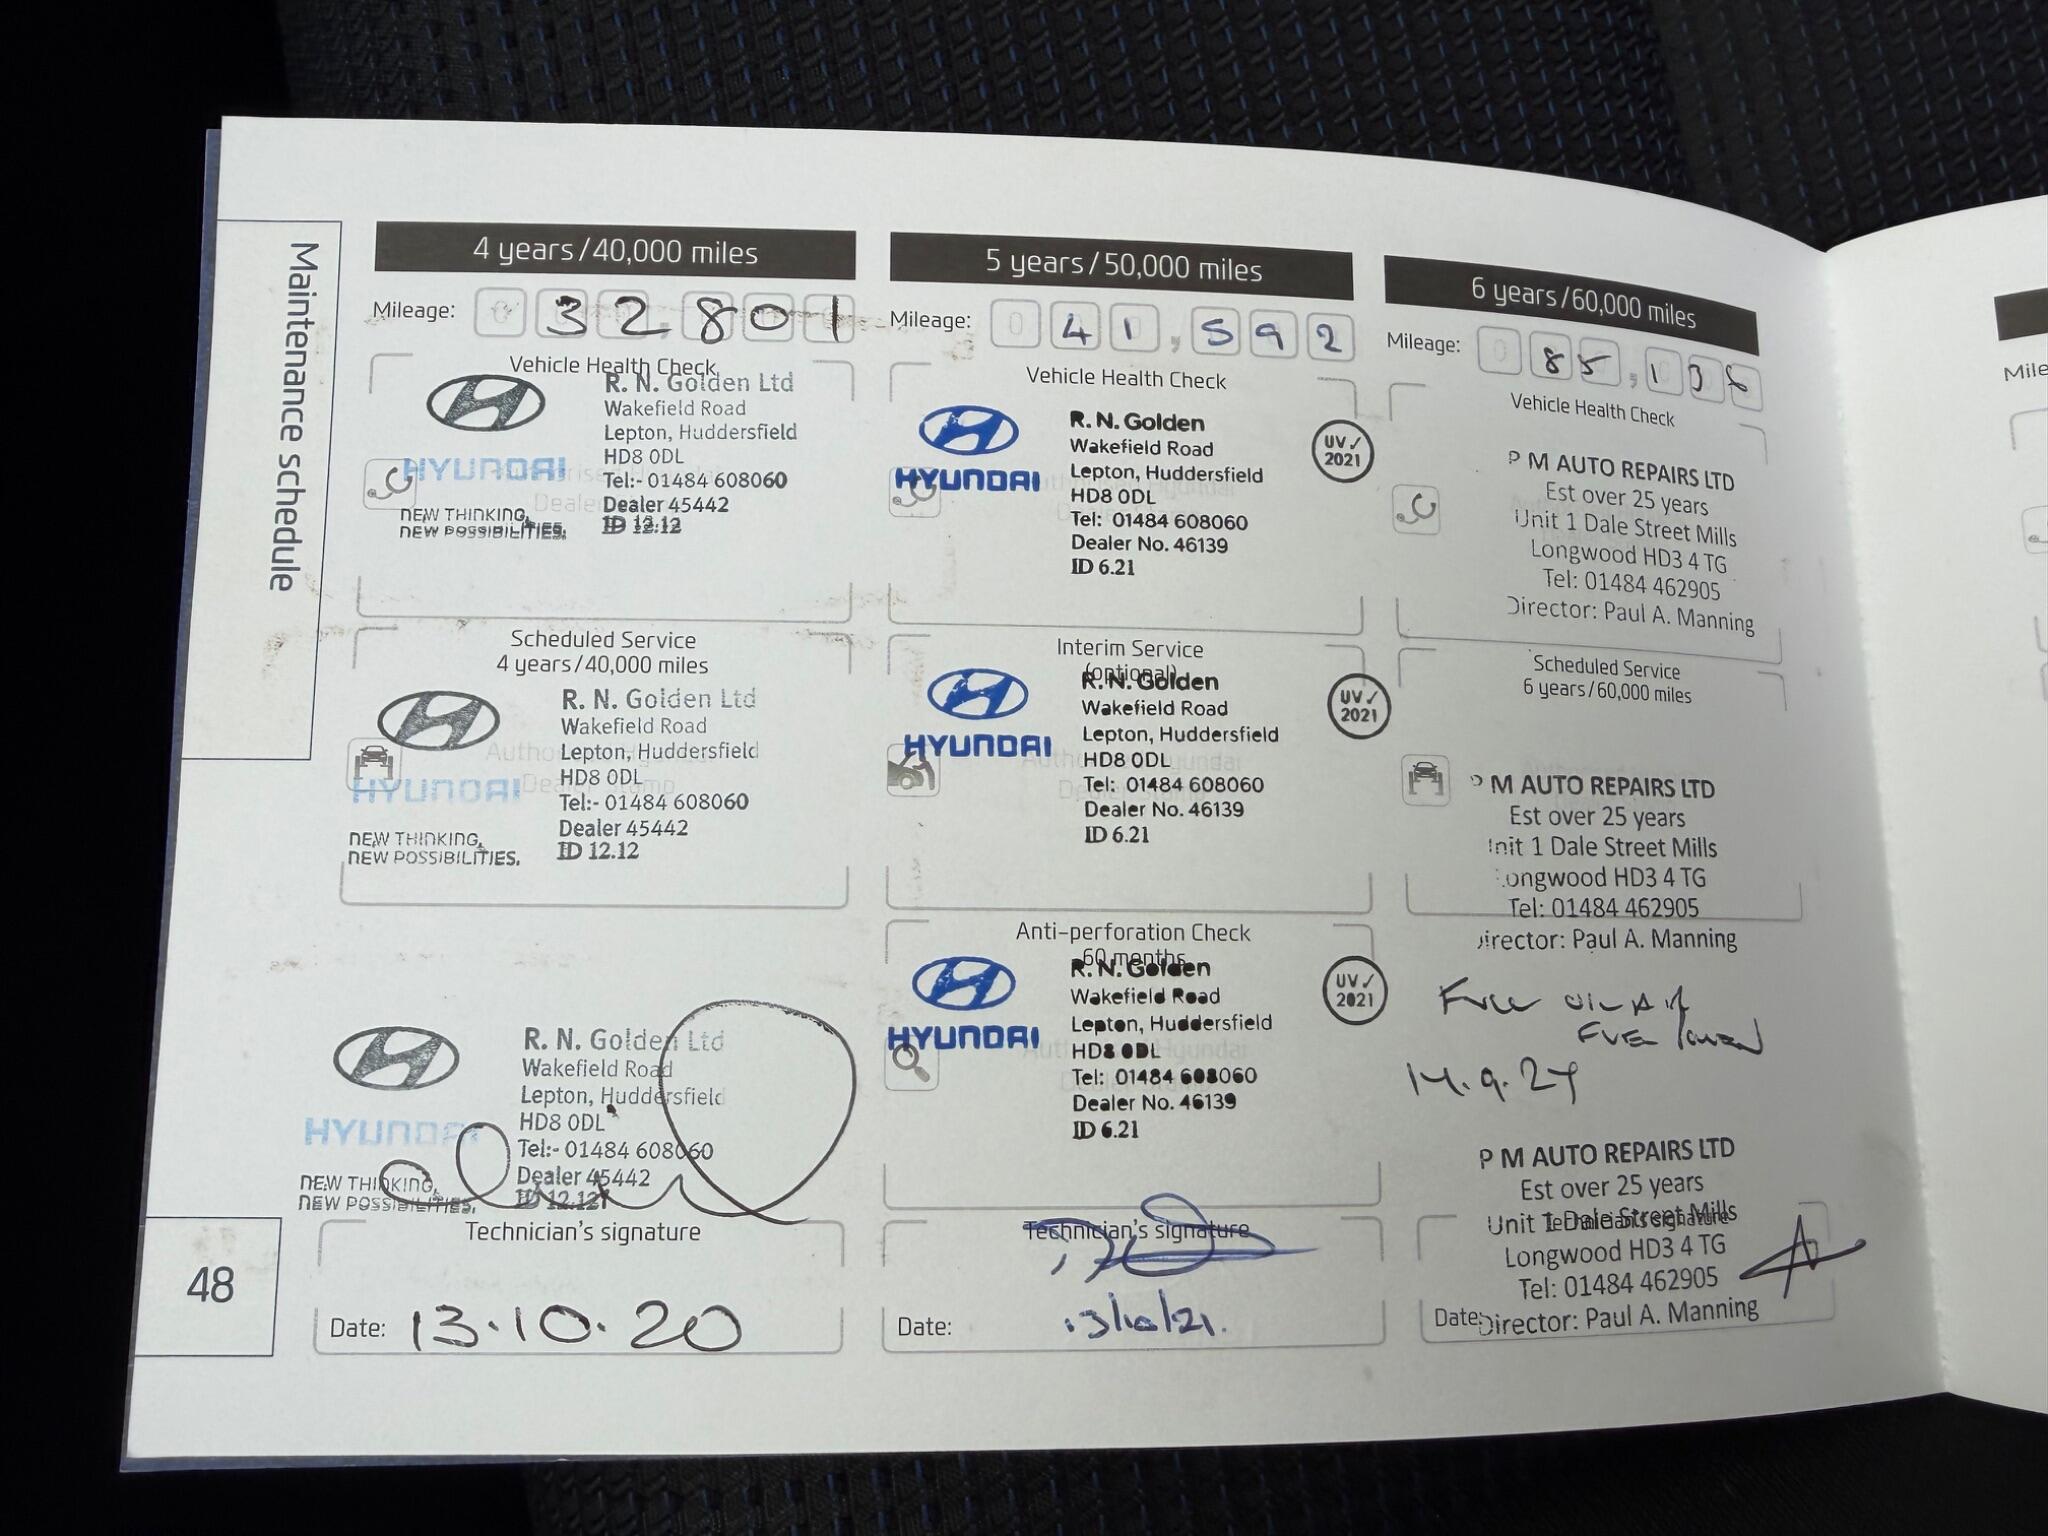 Maintenance schedule
4 years/40,000 miles
Mileage: 32,801
Vehicle Health Check
R. N. Golden Ltd
Wakefield Road
Lepton, Huddersfield
HD8 0DL
HYUNDAI
Tel:- 01484 608060
Dealer 45442
NEW THINKING.
NEW POSSIBILITIES.
ID 12.12
Scheduled Service
4 years/40,000 miles
R. N. Golden Ltd
Wakefield Road
Lepton, Huddersfield
HD8 0DL
HYUNDAI
Tel:- 01484 608060
Dealer 45442
NEW THINKING.
NEW POSSIBILITIES.
ID 12.12
R. N. Golden Ltd
Wakefield Road
Lepton, Huddersfield
HD8 0DL
HYUNDAI
Tel:- 01484 608060
Dealer 45442
NEW THINKING.
NEW POSSIBILITIES.
ID 12.12
Technician's signature
Date: 13.10.20
48
5 years/50,000 miles
Mileage: 0 41,592
Vehicle Health Check
R. N. Golden
Wakefield Road
Lepton, Huddersfield
HYUNDAI
HD8 0DL
Tel: 01484 608060
Dealer No. 46139
ID 6.21
UV✓
2021
Interim Service
(optional)
R. N. Golden
Wakefield Road
Lepton, Huddersfield
HYUNDAI
HD8 0DL
Tel: 01484 608060
Dealer No. 46139
ID 6.21
UV✓
2021
Anti-perforation Check
60 months
R. N. Golden
Wakefield Road
Lepton, Huddersfield
HYUNDAI
HD8 0DL
Tel: 01484 608060
Dealer No. 46139
ID 6.21
UV✓
2021
Technician's signature
Date: 13/10/21.
6 years/60,000 miles
Mileage: 0 85,136
Vehicle Health Check
P M AUTO REPAIRS LTD
Est over 25 years
Unit 1 Dale Street Mills
Longwood HD3 4 TG
Tel: 01484 462905
Director: Paul A. Manning
Scheduled Service
6 years/60,000 miles
P M AUTO REPAIRS LTD
Est over 25 years
Unit 1 Dale Street Mills
Longwood HD3 4 TG
Tel: 01484 462905
Director: Paul A. Manning
14.9.24
P M AUTO REPAIRS LTD
Est over 25 years
Unit 1 Dale Street Mills
Technician's signature
Longwood HD3 4 TG
Tel: 01484 462905
Date:
Director: Paul A. Manning